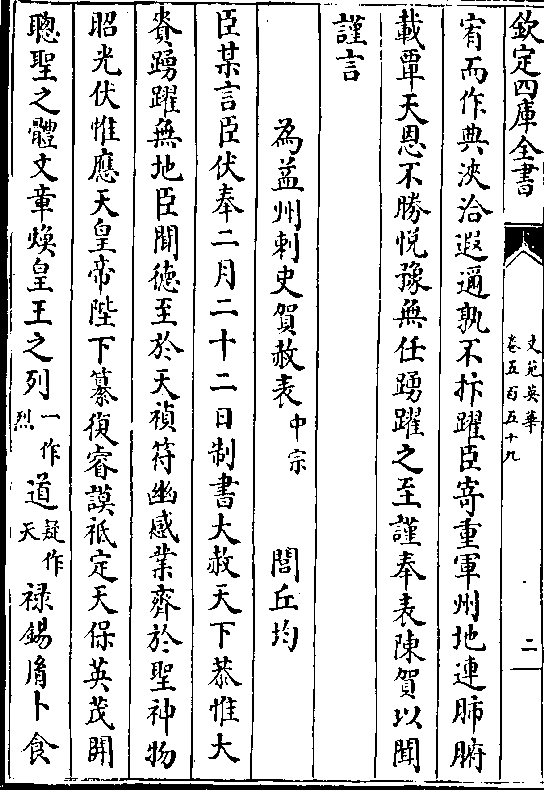 欽定四庫全書
文苑英華
卷五百五十九
二
宥而作典浹洽遐邇孰不抃躍臣寄重軍州地連肺腑
載覃天恩不勝悅豫無任踴躍之至謹奉表陳賀以聞
謹言
為益州刺史賀赦表中宗 閭丘均
臣某言臣伏奉二月二十二日制書大赦天下恭惟大
賚踴躍無地臣聞德至於天禎符幽感業齊於聖神物
昭光伏惟應天皇帝陛下纂復睿謨祗定天保英茂開
聰聖之體文章煥皇王之列一作烈道疑作天祿錫脩卜食